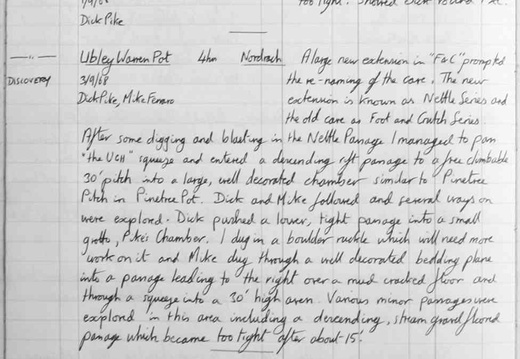 too tight.
Dick Pike
DISCOVERY
Ubley Warren Pot 4hr Nordrach
3/9/68
Dick Pike, Mike Fenaro
A large new extension in "F&C" prompted
the re-naming of the cave. The new
extension is known as Nettle Series and
the old cave as Foot and Crutch Series
After some digging and blasting in the Nettle Passage I managed to pass
"the UGH" squeeze and entered a descending rift passage to a free climbable
30' pitch into a large, well decorated chamber similar to Pinetree
Pitch in Pinetree Pot. Dick and Mike followed and several ways on
were explored. Dick pushed a lower, tight passage into a small
grotto, Pike's Chamber. I dug in a boulder ruckle which will need more
work on it and Mike dug through a well decorated bedding plane
into a passage leading to the right over a mud cracked floor and
through a squeeze into a 30' high aven. Various minor passages were
explored in this area including a descending, stream gravel floored
passage which became too tight after about 15'.